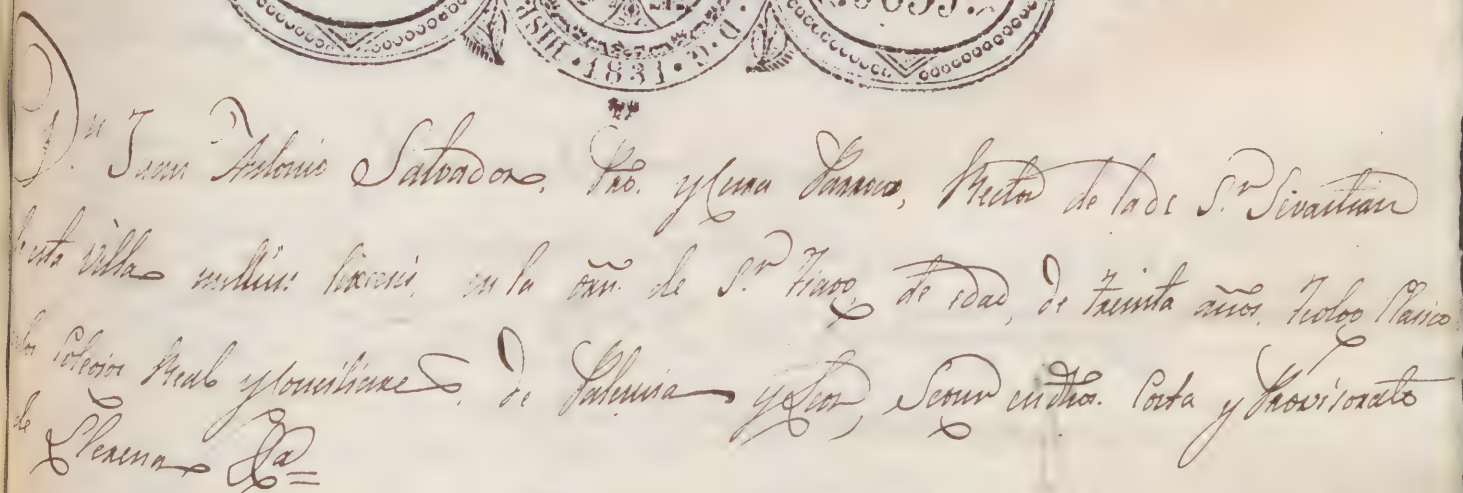 HISP. 1831. D. G.
D.n Juan Antonio Salvador, Pro. y Cura Parroco, Rector de la de S.n Sivastian
esta villa nullius en la orn. de S.n Tiago, de edad, de treinta años, Teologo Clasico
Colegios Real y Conciliares, de Palencia y Leon, Segun en dho. Corta y Provisorato
de Llerena &a